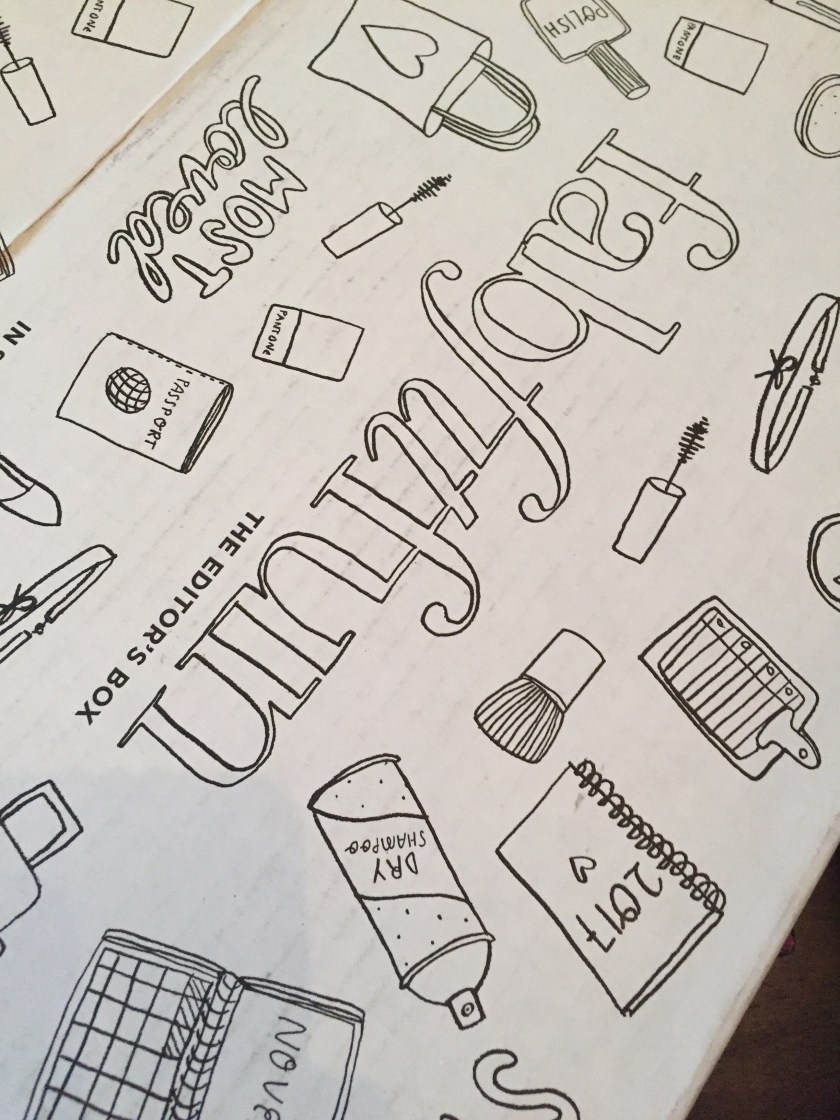 PANTONE
POLISH
PANTONE
MOST
loved
fabfitfun
PANTONE
PASSPORT
IN
THE EDITOR'S BOX
DRY
SHAMPOO
2017
NOVE
S